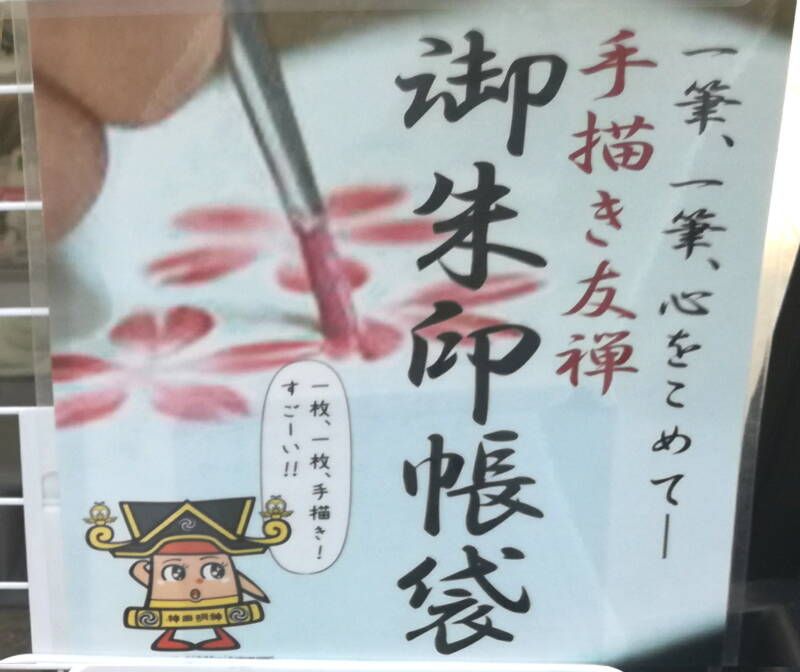 一筆、一筆、心をこめて—
手描き友禅
御朱印帳袋
一枚、一枚、手描き!
すごーい!!
神田明神